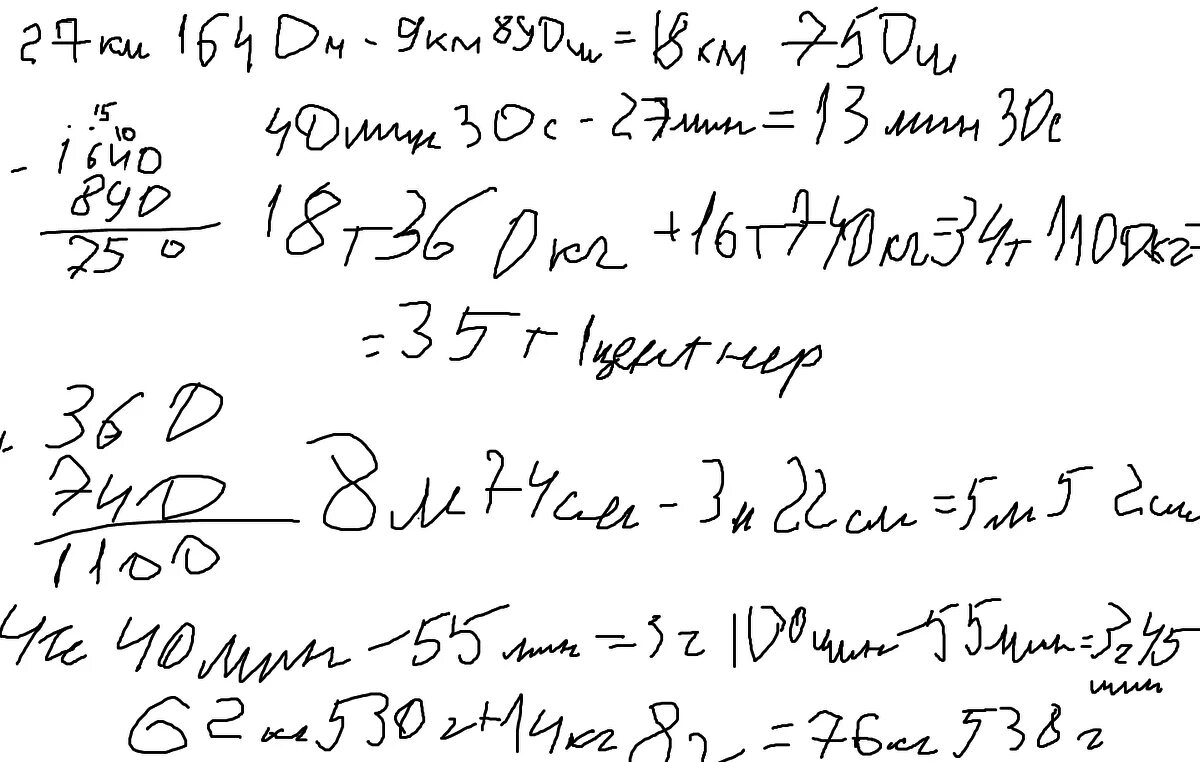 27км 1640м - 9км 890м = 18км 750м
40мин 30с - 27мин = 13мин 30с
15
10
- 1640
890
750
18т 360кг + 16т 740кг = 34т 1100кг =
= 35т 1центнер
+ 360
740
1100
8м 74см - 3м 22см = 5м 52см
4ч 40мин - 55мин = 3ч 100мин - 55мин = 3ч 45
мин
62кг 530г + 14кг 8г = 76кг 538г